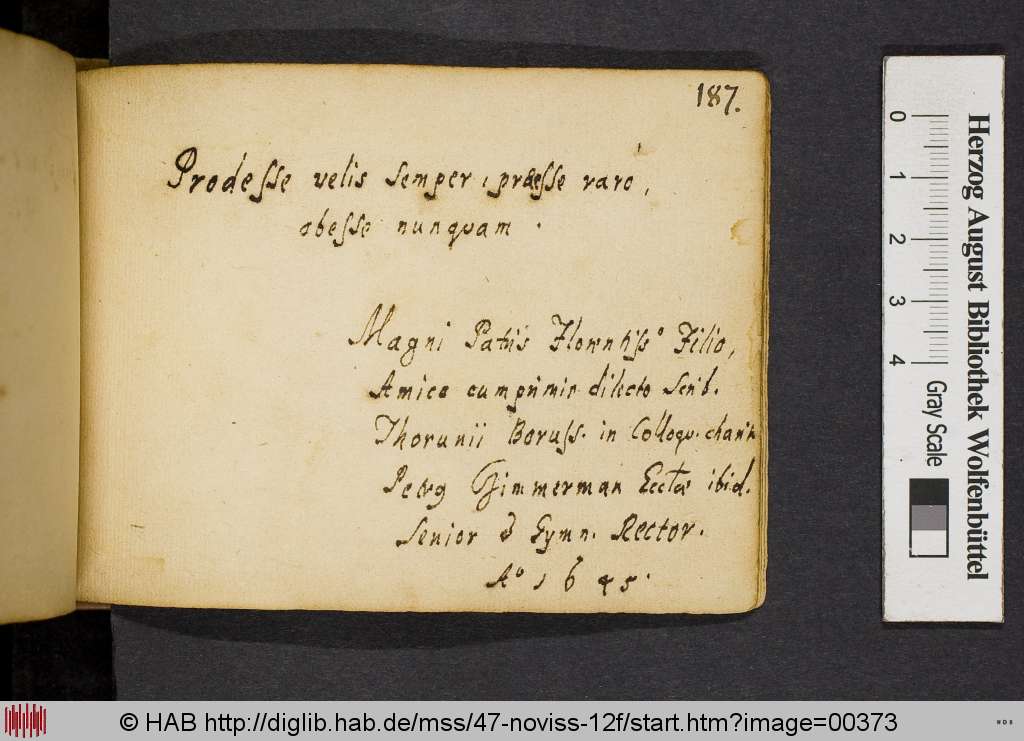 187.
Prodesse velis semper, præesse raro,
obesse nunquam.
Magni Patris Florentiss° Filio,
Amico cumprimis dilecto scrib.
Thorunii Boruss. in Colloqu. charit.
Petrg Zimmerman Eccl̃æ ibid.
Senior & Gymn. Rector.
A° 1645.
Herzog August Bibliothek Wolfenbüttel
0 1 2 3 4
Gray Scale
© HAB http://diglib.hab.de/mss/47-noviss-12f/start.htm?image=00373